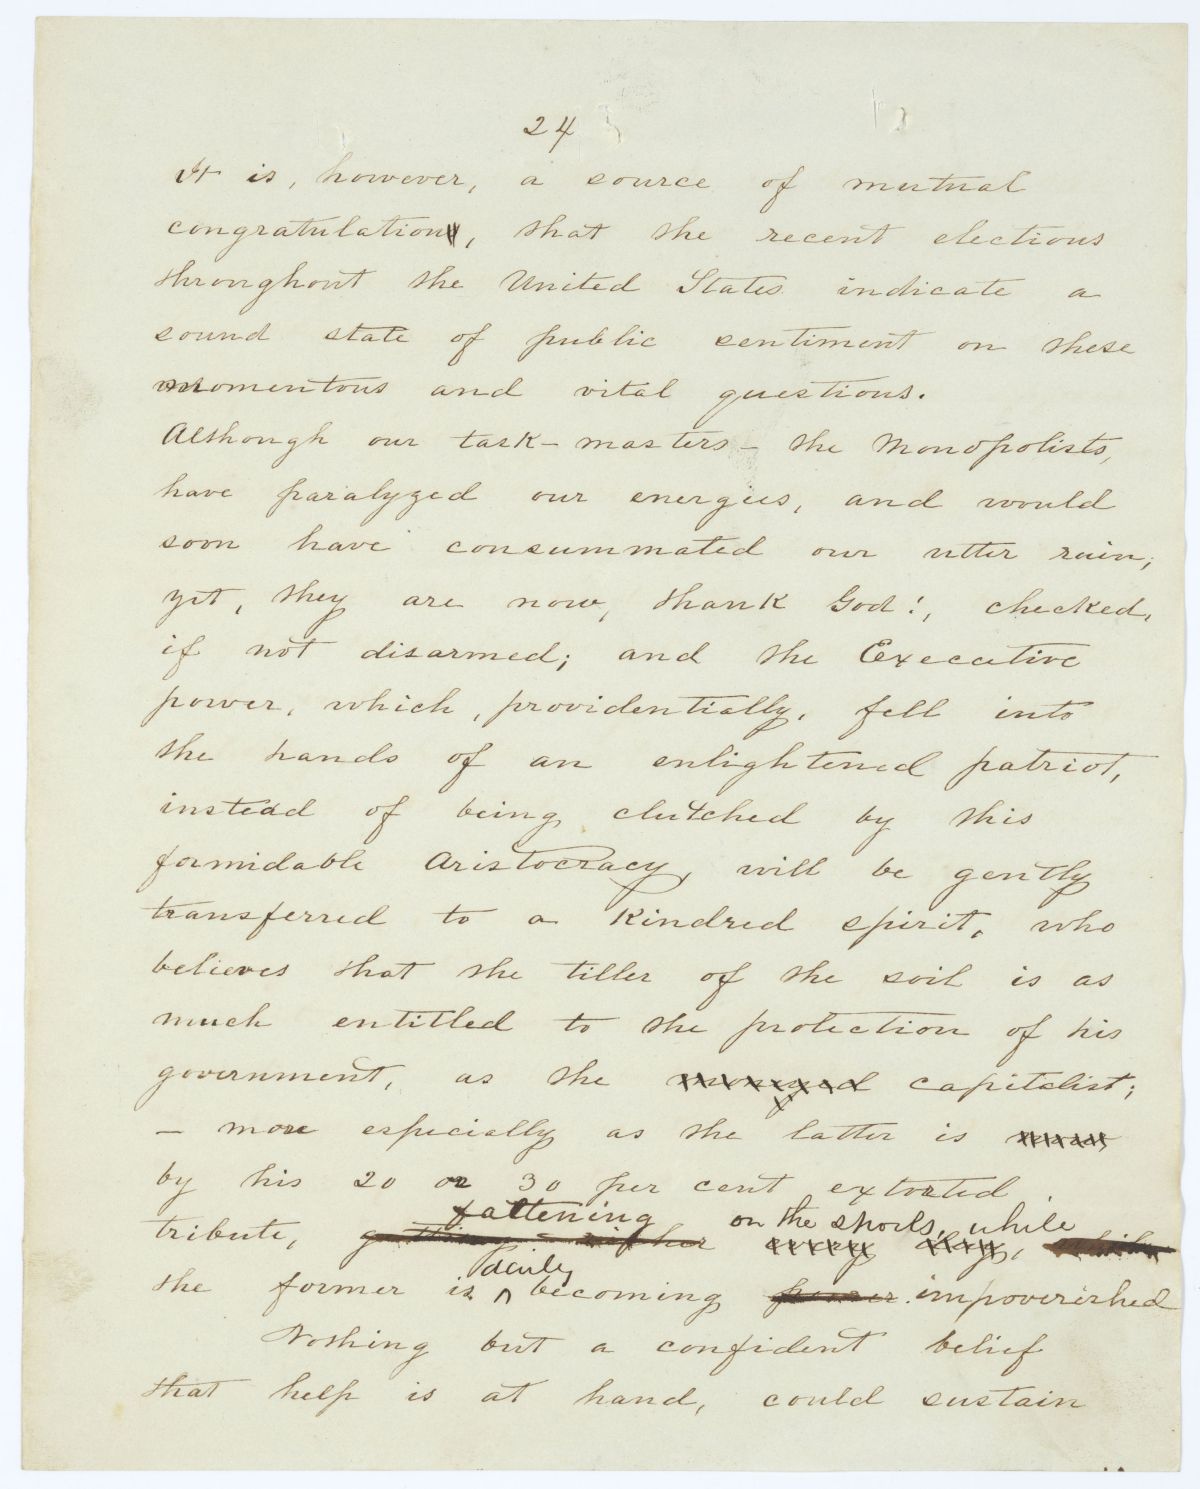 24
It is, however, a source of mutual
congratulation, that the recent elections
throughout the United States indicate a
sound state of public sentiment on these
momentous and vital questions.
Although our task-masters - the Monopolists,
have paralyzed our energies, and would
soon have consummated our utter ruin;
yet, they are now, thank God!, checked,
if not disarmed; and the Executive
power, which, providentially, fell into
the hands of an enlightened patriot,
instead of being clutched by this
formidable Aristocracy, will be gently
transferred to a Kindred spirit, who
believes that the tiller of the soil is as
much entitled to the protection of his
government, as the moneyed capitalist;
- more especially as the latter is
by his 20 or 30 per cent extorted
fattening on the spoils, while
tribute, getting richer every day, while
daily
the former is ^ becoming poorer impoverished
Nothing but a confident belief
that help is at hand, could sustain